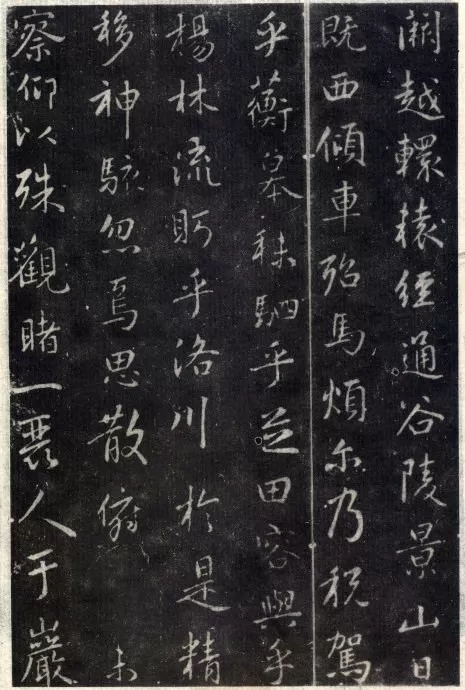 闕越轘轅經通谷陵景山日
既西傾車殆馬煩尓乃税駕
乎蘅皋秣駟乎芝田容與乎
楊林流眄乎洛川於是精
移神駭忽焉思散俯未
察仰以殊觀睹一麗人于巖